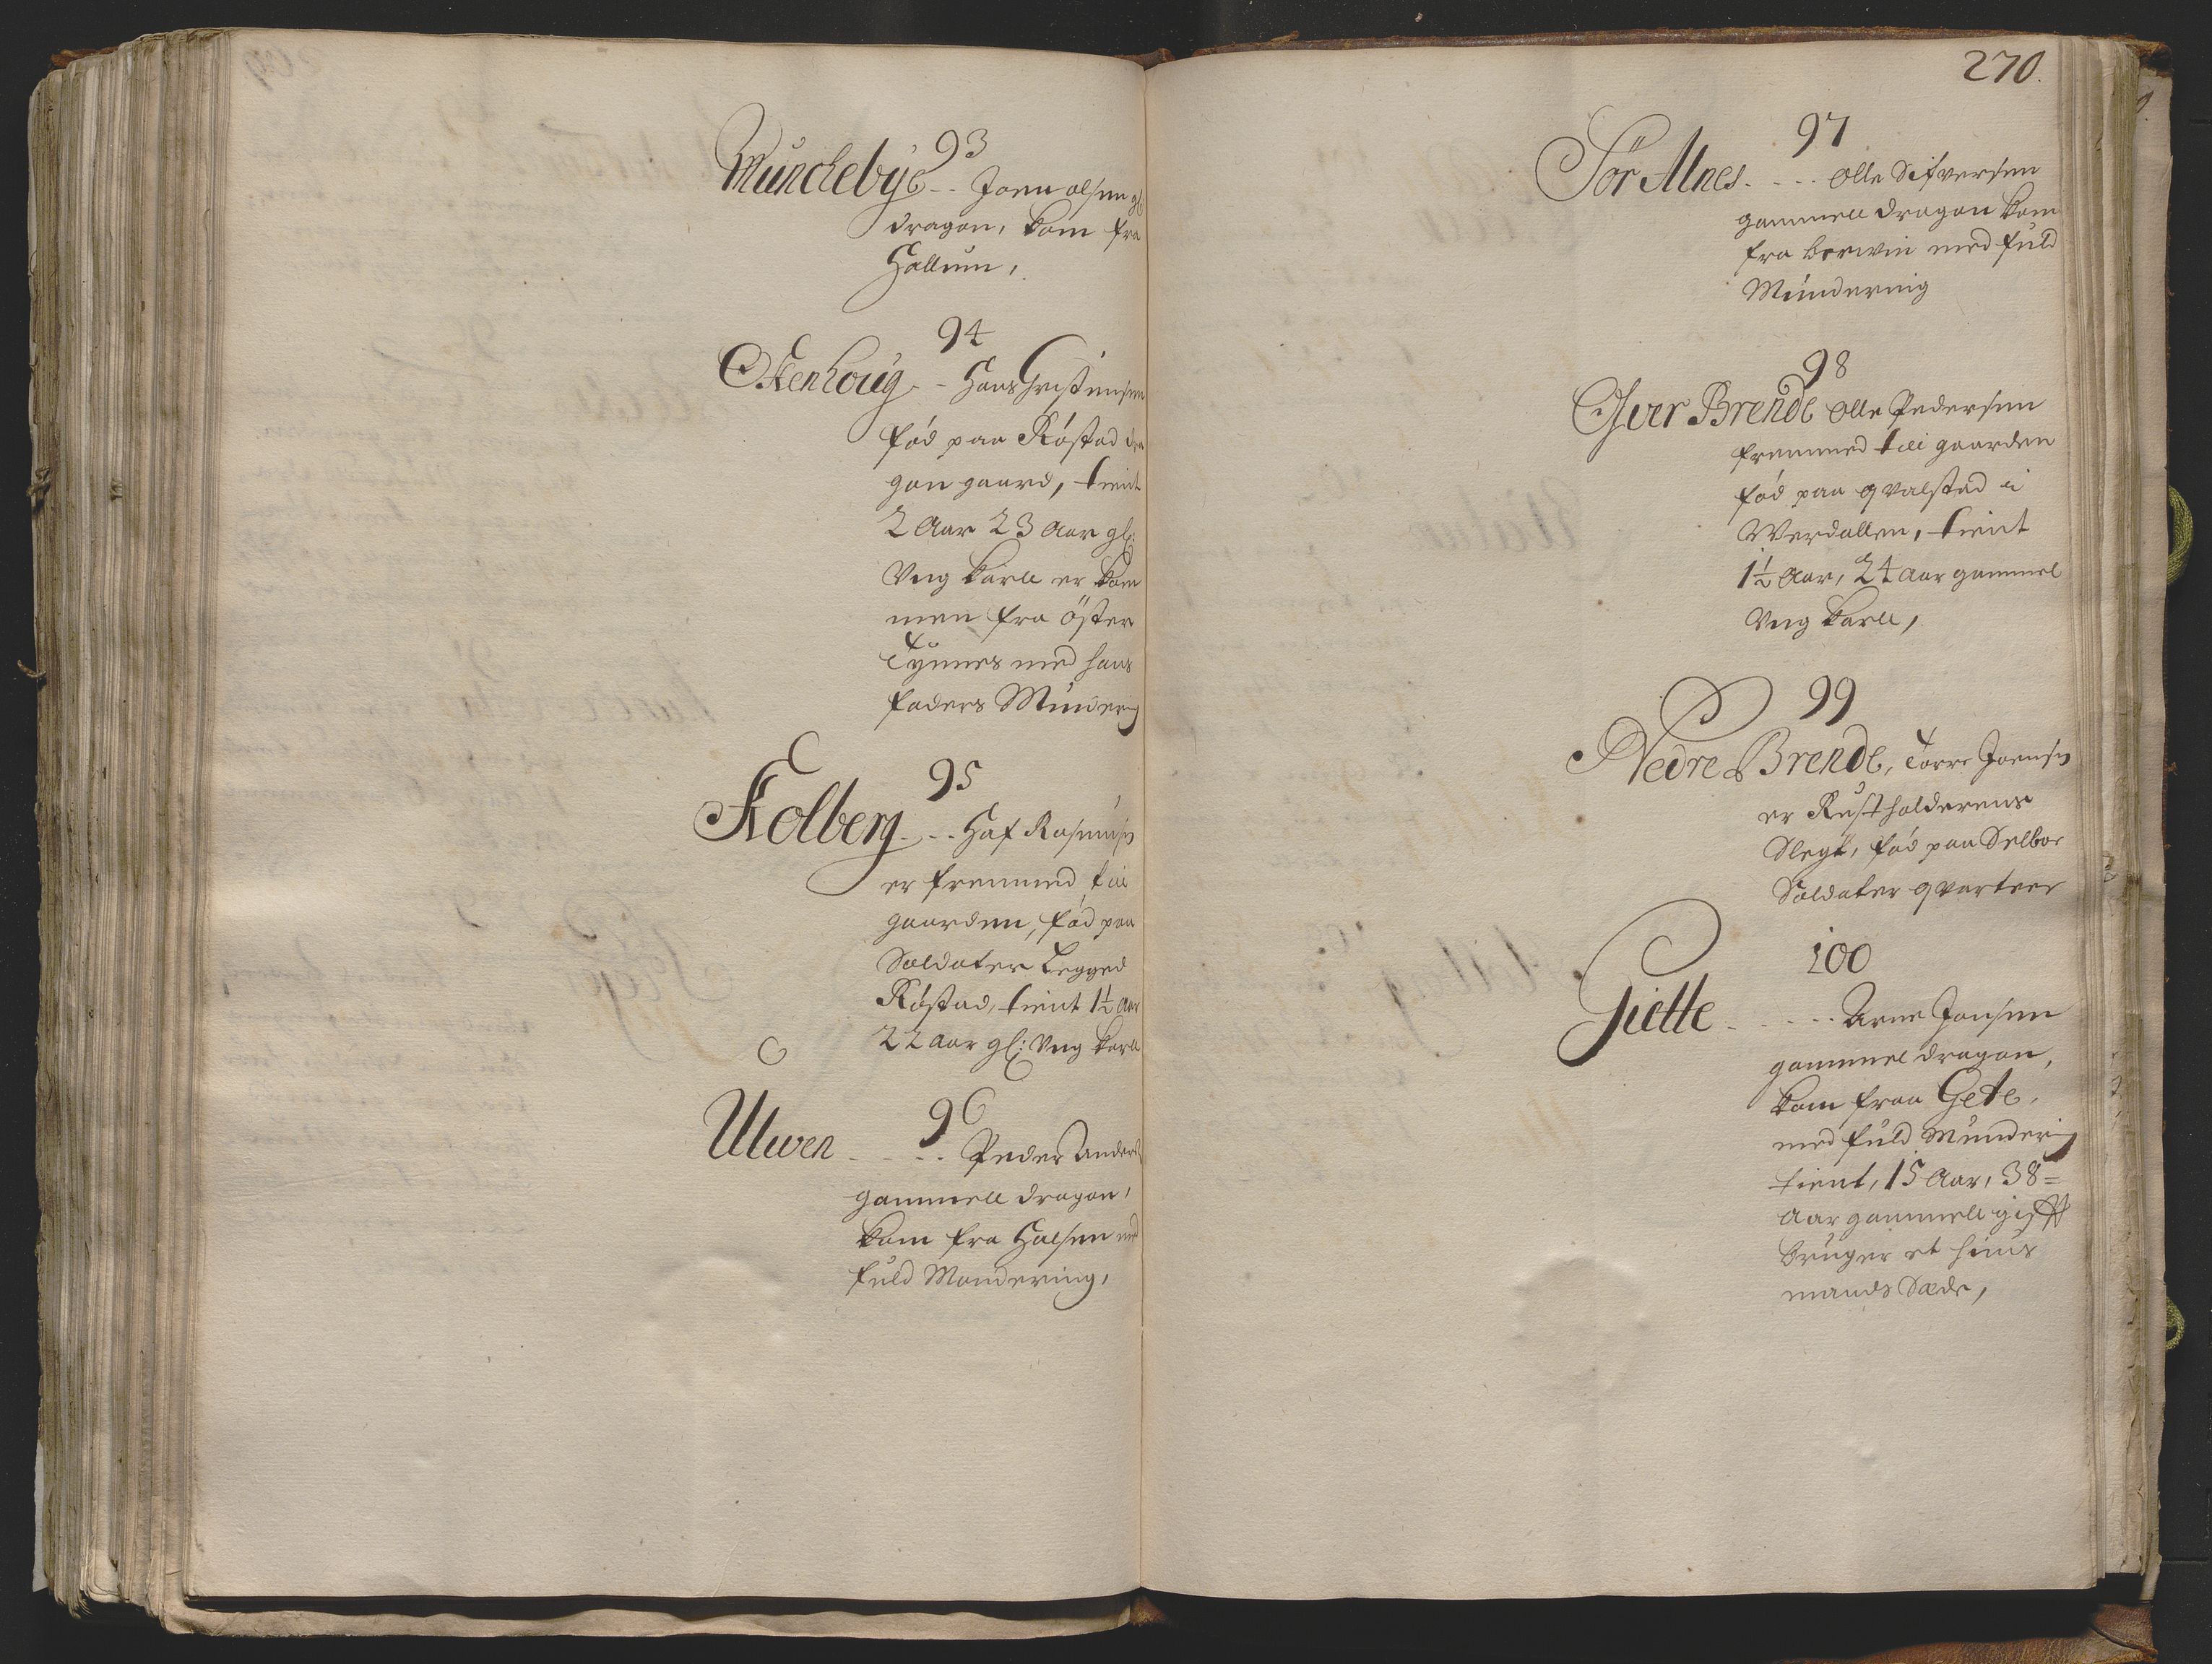 93
Munckebÿe -- Joen olsen gl:
dragon, kom fra
Hallum,
94
Stenhoug - - Hans Christensen
fød paa Røstad dra
gon gaard, tient
2 Aar 23 Aar gl:
Vng karll er kom
men fra öster
Tynnes med hans
faders Mündering
95
Kolberg - - - Haf Rasmusn
er fremmed till
gaarden, fød paa
Soldater Legged
Røstad, tient 1½ Aar
22 aar gl: Vng karll
96
Ulwen - - - - Peder Anders
gammell dragon,
kom fra Halsen med
fuld Mondering,
270.
97
Sör Alnes - - - - Olle Sifversen
gammell dragon kom
fra med fuld
Mündering
98
Øver Brende Olle Pedersen
fremmed till gaarden
fød paa qvalstad i
Werdallen, tient
1½ Aar, 24 Aar gammel
Vng karll,
99
Nedre Brende, Torre Joensn
er Rustholderens
Slegt, fød paa Selboe
Soldater qvarteer
100
Giette - - - - - Arne Jonsen
gammel dragon,
kom fraa Gete,
med fuld Mundering
tient, 15 Aar, 38=
Aar gammell gifft
bruger et huus
mands Sæde,